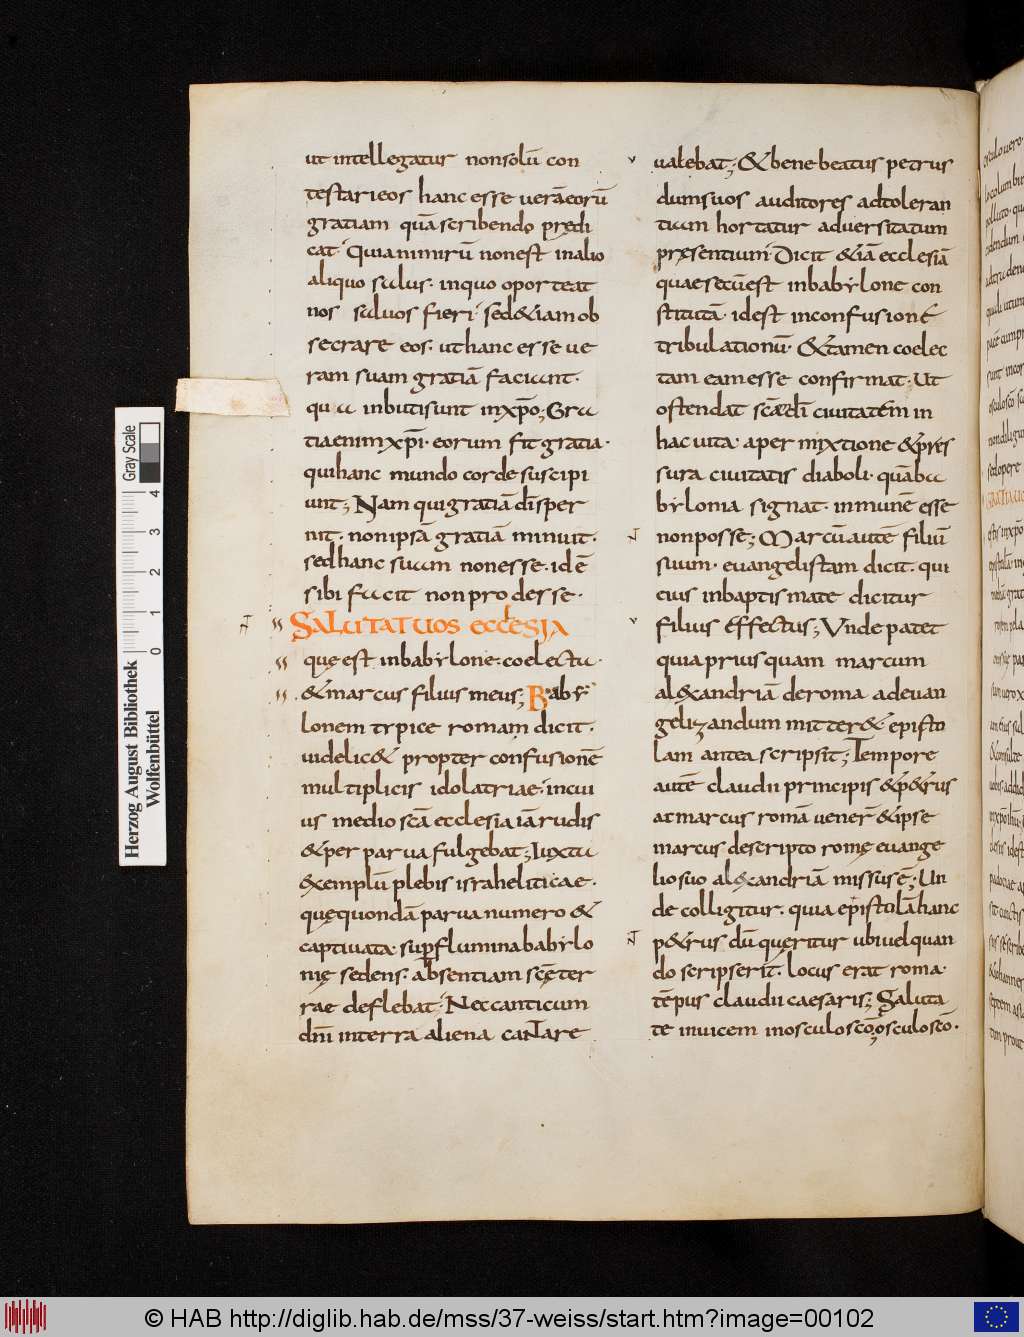 ut intellegatur nonsolū con
testarieos hanc esse uerāeorū
gratiam quā scribendo prędi
cat; Quianimirū nonest inalio
aliquo salus· inquo oporteat
nos saluos fieri· sed&iam ob
secrare eos· uthanc esse ue
ram suam gratiā faciunt·
qua inbutisunt inxp̄o; Gra
tiaenim xp̄i· eorum fit gratia·
quihanc mundo corde suscipi
unt; Nam quigratiā dī sper
nit· nonipsā gratiā minuit·
sedhanc suam nonesse· idē
sibi facit non prodesse·
SALUTAT UOS ECCLESIA
quę est inbabylone· coelecta·
& marcus filius meus; Baby
lonem typice romam dicit·
uidelic& propter confusionē
multiplicis idolatriae· incui
us medio scā ecclesia iā rudis
& per parua fulgebat; Iuxta
exemplū plebis israheliticae·
quęquondā parua numero &
captiuata· sup̄ flumina babylo
nię sedens· absentiam scę ter
rae deflebat; Nec canticum
dn̄i interra aliena cantare
ualebat; & bene beatus petrus
dumsuos auditores adtoleran
tiam hortatur aduersitatum
pręsentium· Dicit &iā ecclesiā
quae secū est inbabylone con
stitutā· idest inconfusione
tribulationū· & tamen coelec
tam eam esse confirmat; Ut
ostendat scā dī ciuitatem in
hac uita· aper mixtione &pres
sura ciuitatis diaboli· quā ba
bylonia signat· inmunē esse
nonposse; Marcū autē filiū
suum· euangelistam dicit· qui
eius inbaptismate dicitur
filius effectus; Unde patet
quia prius quam marcum
al&xandriā deroma adeuan
gelizandum mitter& episto
lam antea scripsit; Tempore
autē claudii principis &p&rus
atmarcus romā uener̄ &ipse
marcus descripto romę euange
liosuo al&xandriā missus ē; Un
de colligitur· quia epistolā hanc
p&rus dū queritur ubi uel quan
do scripserit· locus erat roma·
tēpus claudii caesaris; Saluta
te inuicem inosculo scō; osculo scō·
Gray Scale
0 1 2 3 4
Herzog August Bibliothek
Wolfenbüttel
© HAB http://diglib.hab.de/mss/37-weiss/start.htm?image=00102